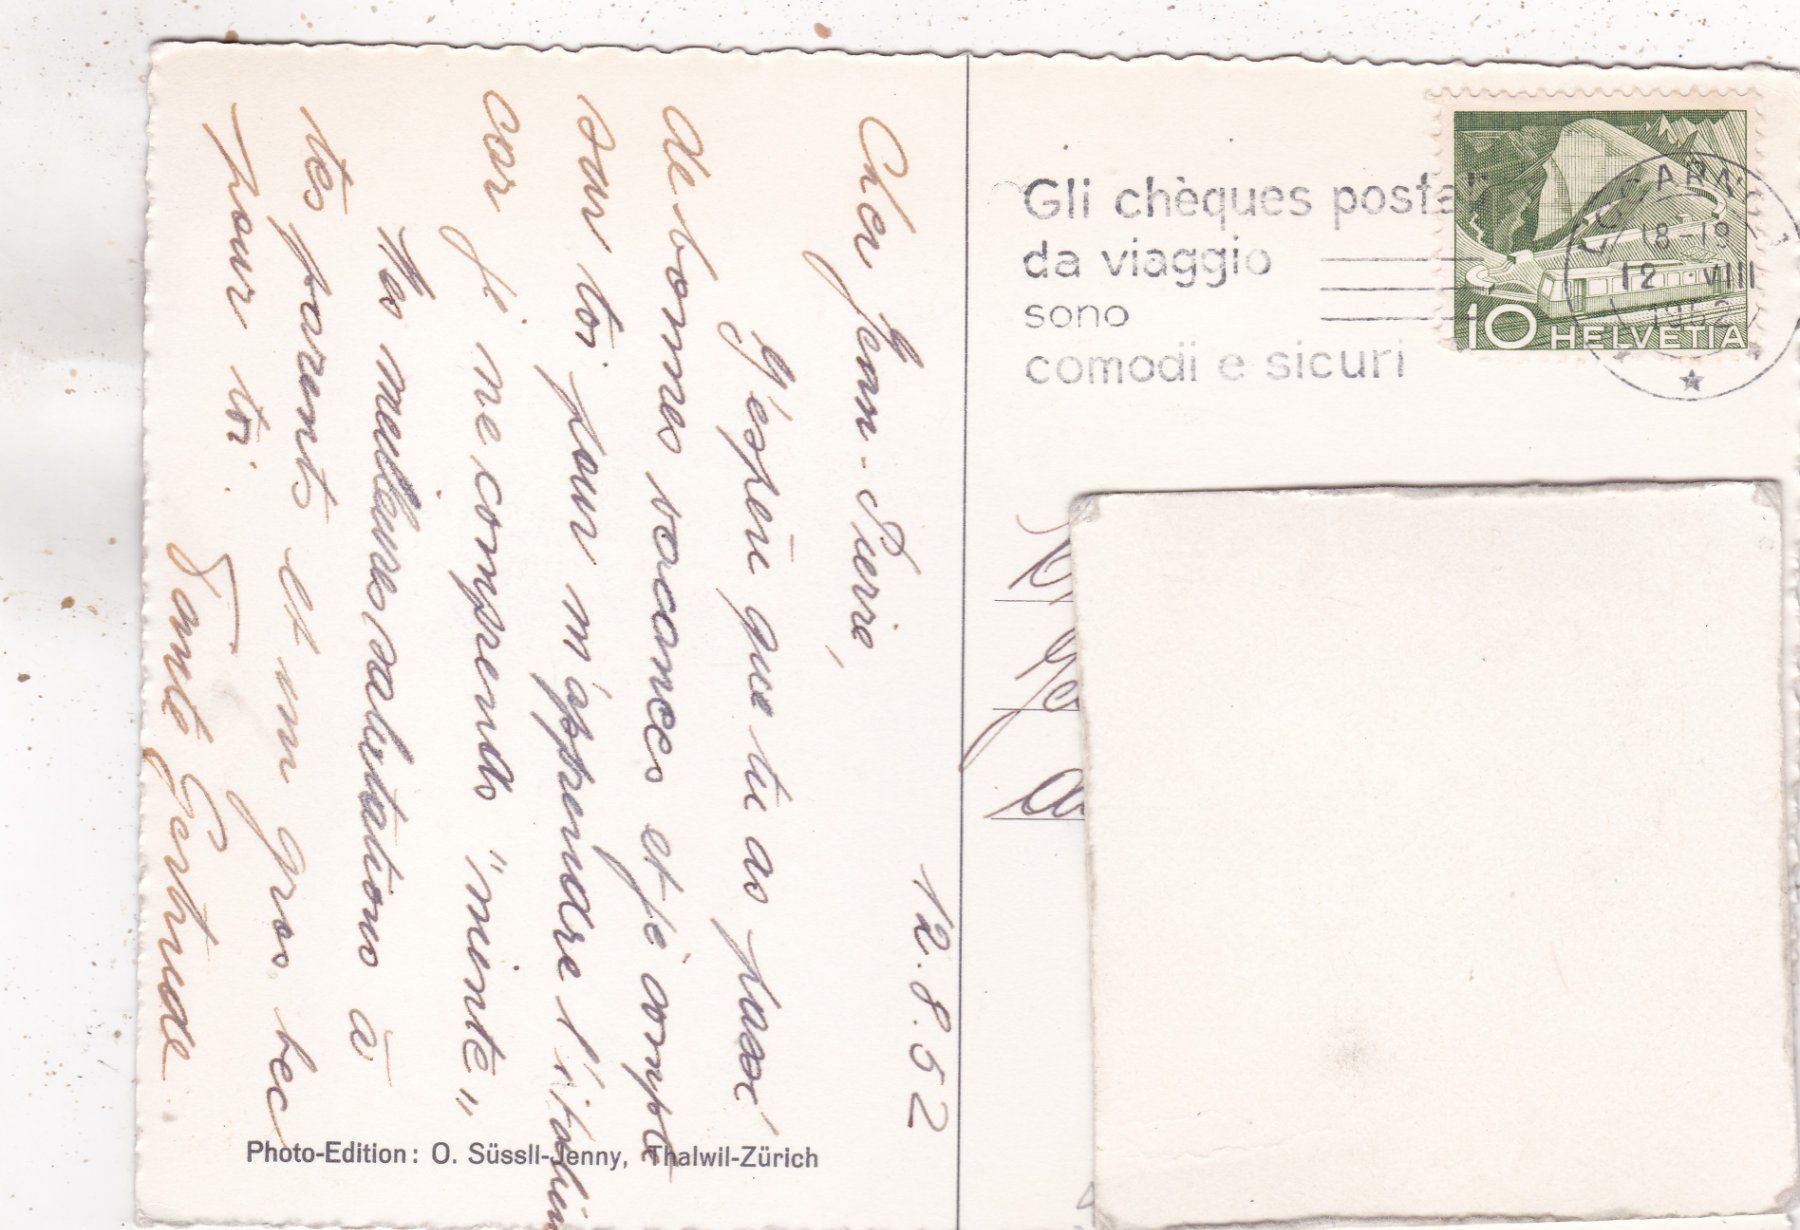 12.8.52
Cher Jean-Pierre,
J'espère que tu as passé
de bonnes vacances et je compte
sur toi pour m'apprendre l'italien
car je ne comprends "niente"
Nos meilleures salutations à
tes parents et un gros bec
pour toi.
Tante Gertrude
Photo-Edition: O. Süssli-Jenny, Thalwil-Zürich
Gli chèques postali
da viaggio
sono
comodi e sicuri
LOCARNO
18-19
12 VIII
1952
10 HELVETIA